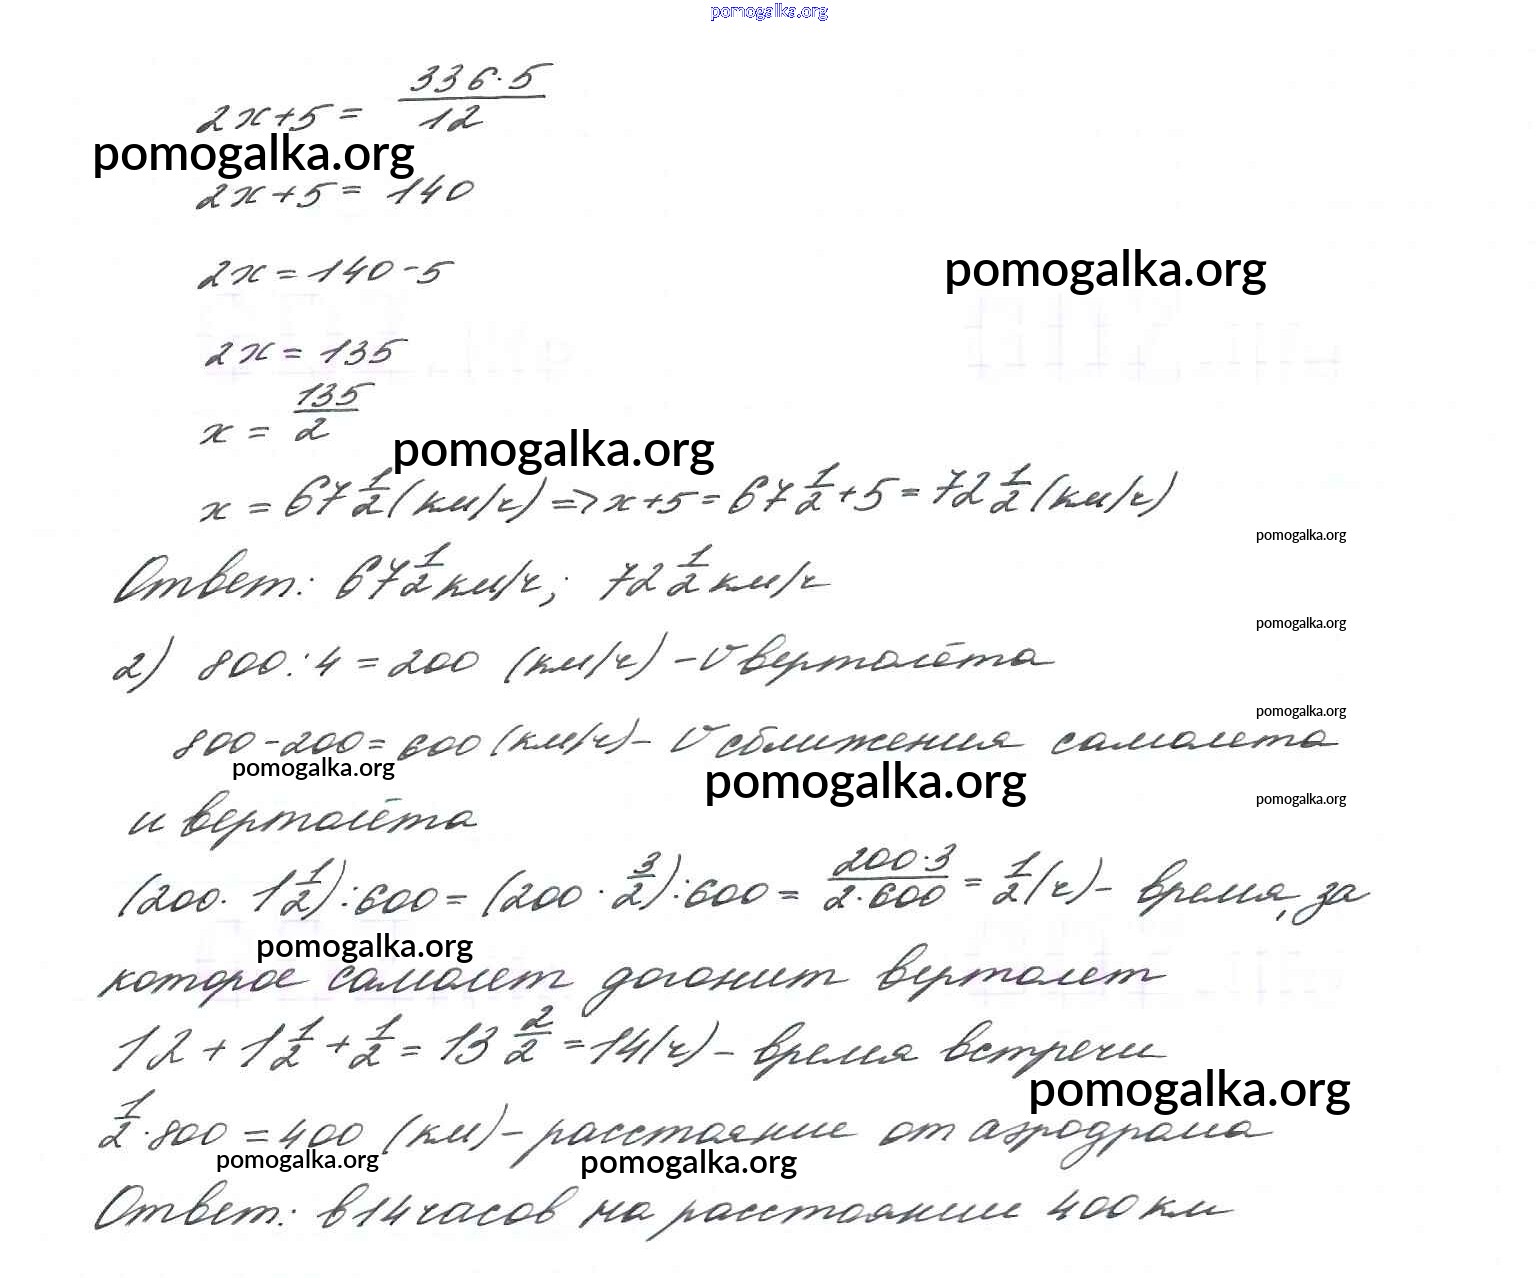 pomogalka.org
2x+5 = 336·5/12
pomogalka.org
2x+5 = 140
2x = 140-5
pomogalka.org
2x = 135
x = 135/2
pomogalka.org
x = 67 1/2 (км/ч) => x+5 = 67 1/2 + 5 = 72 1/2 (км/ч)
pomogalka.org
Ответ: 67 1/2 км/ч; 72 1/2 км/ч
pomogalka.org
2) 800:4 = 200 (км/ч) - V вертолёта
pomogalka.org
800-200 = 600 (км/ч) - V сближения самолета
pomogalka.org
pomogalka.org
pomogalka.org
и вертолёта
(200 · 1 1/2):600 = (200 · 3/2):600 = 200·3/2·600 = 1/2 (ч) - время, за
pomogalka.org
которое самолет догонит вертолет
12 + 1 1/2 + 1/2 = 13 2/2 = 14(ч) - время встречи
pomogalka.org
1/2 · 800 = 400 (км) - расстояние от аэродрома
pomogalka.org
pomogalka.org
Ответ: в 14 часов на расстоянии 400 км